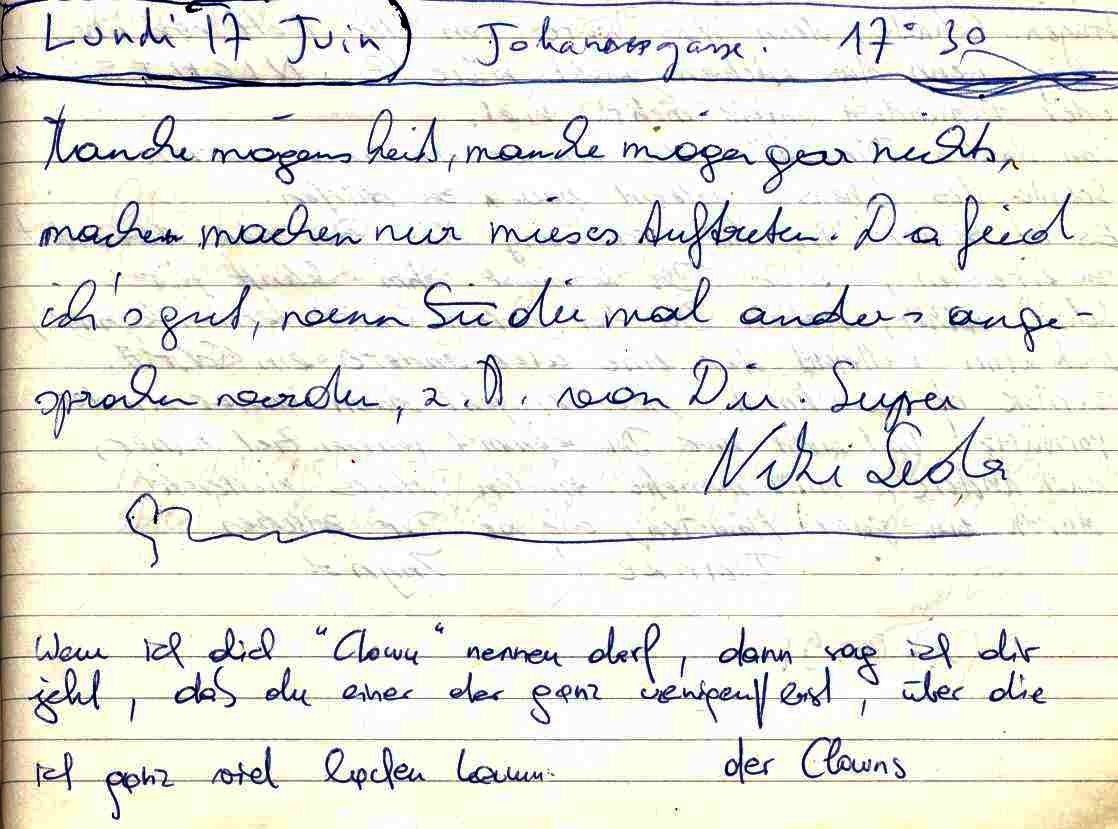 Lundi 17 Juin Johannesgasse. 17:30
Manche mögens heiß, manche mögen gar nichts,
machen machen nur mieses Auftreten. Da find
ich's gut, wenn Sie die mal anders ange-
sprochen werden, z.B. von Dir. Super
Niki
Wenn ich dich "Clown" nennen darf, dann sag ich dir
jetzt, daß du einer der ganz wenigen bist, über die
ich ganz viel lachen kann.
der Clowns